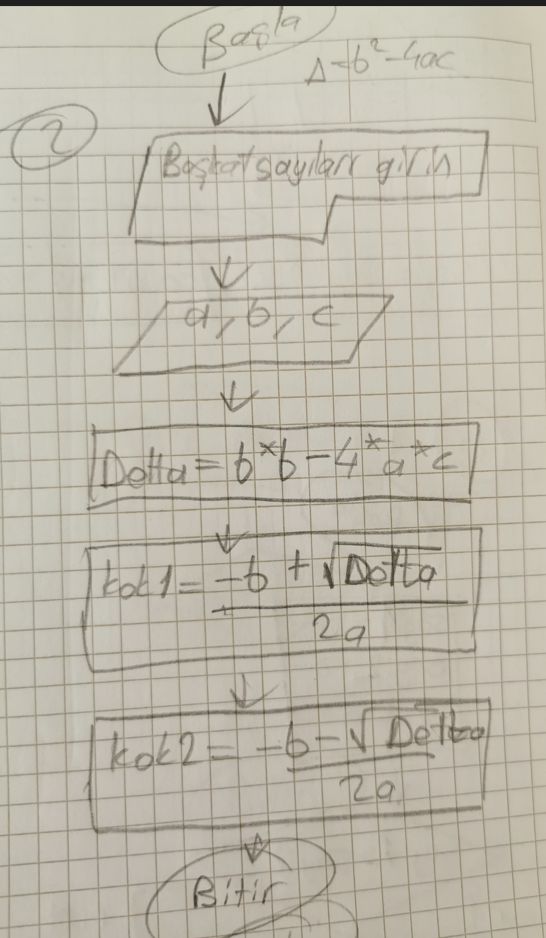 Başla
Δ=b²-4ac
2
Başkatsayıları girin
a, b, c
Delta = b*b-4*a*c
kök1 = -b + √Delta
2a
kök2 = -b-√Delta
2a
Bitir